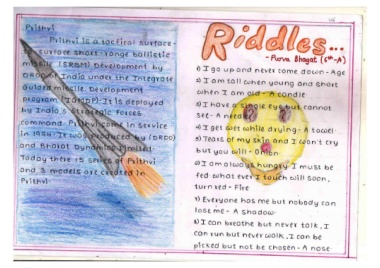 Prithvi
Prithvi is a tactical surface-
to-surface short-range ballistic
missile (SRBM) development by
DRDO of India under the Integrate
Guided missile Development
program (IGMDP). It is deployed
by India's Strategic Forces
command. Prithvi come in service
in 1994. It was produced by (DRDO)
and Bharat Dynamics Limited.
Today there is series of Prithvi
and 3 models are created in
Prithvi.
Riddles...
- Purva Bhagat (6th-A)
1) I go up and never come down - Age
2) I am tall when young and short
when I am old - A candle
3) I have a single eye but cannot
see - A needle
4) I get wet while drying - A towel
5) Tears of my skin and I won't cry
but you will - Onion
6) I am always hungry I must be
fed what ever I touch will soon,
turn red - Fire
7) Everyone has me but nobody can
lose me - A shadow
8) I can breathe but never talk, I
can run but never walk, I can be
picked but not be chosen - A nose